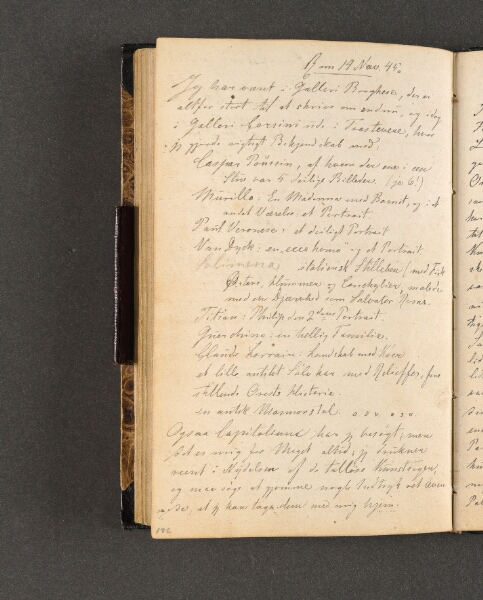 Rom 19 Nov. 45.
Jeg har været i Galleri Borghese, der er
altfor stort til at skrive om endnu, og idag
i Galleri Corsini ude i Trastevere, hvor
jeg gjorde rigtigt Bekjendskab med
Caspar Poussin, af hvem der var i een
Stue var 5 deilige Billeder. (ja 6!)
Murillo: En Madonna med Barnet, og i et
andet Værelse et Portrait.
Paul Veronese: et deiligt Portrait
Van Dyck: en "ecce homo" og et Portrait
italiensk Stilleben, med Fisk
Østers, Hummer og Conchylier, malede
med en Djærvhed som Salvator Rosas.
Titian: Philip den 2den Portrait.
Guerchino: en hellig Familie.
Claude Lorrain: Landskab med Køer
et lille antikt Sølvkar med Relieffer, fore
stillende Orests Historie.
en antik Marmorstol o.s.v. o.s.v.
Ogsaa Capitolium har jeg besøgt; men
det er mig for Meget altid; jeg drukner
reent i Nydelsen af de talløse Kunstsager,
og maa søge at gjemme nogle Indtryk ret
, at jeg kan tage dem med mig hjem.
102